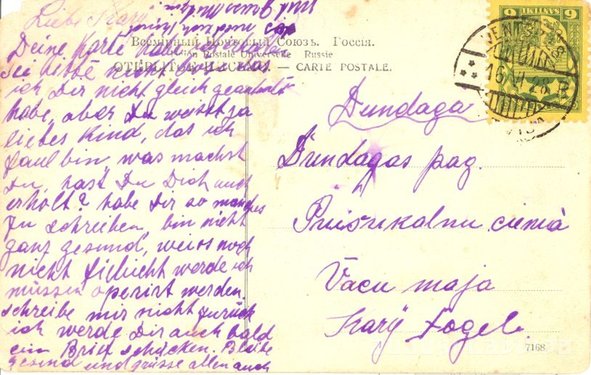 Liebe Kary
Deine Karte habe
Sei bitte nicht böse das
ich Dir nicht gleich geantwortet
habe, aber Du weisst ja
liebes Kind, das ich
faul bin was machst
Du, hast Du Dich auch
erholt? habe Dir so manches
zu schreiben, bin nicht
ganz gesund, weiss noch
nicht vieleicht werde ich
müssen operirt werden.
schreibe mir nicht zurück
ich werde Dir auch bald
ein Brief schicken. Bleibe
gesund und grüsse allen auch
Всемірный Почтовый Союзъ. Россія.
Union Postale Universelle. Russie
ОТКРЫТОЕ ПИСЬМО — CARTE POSTALE.
6 6
Dundaga
Dundagas pag.
ciemā
Vācu maja
Kary Fogel.
7168